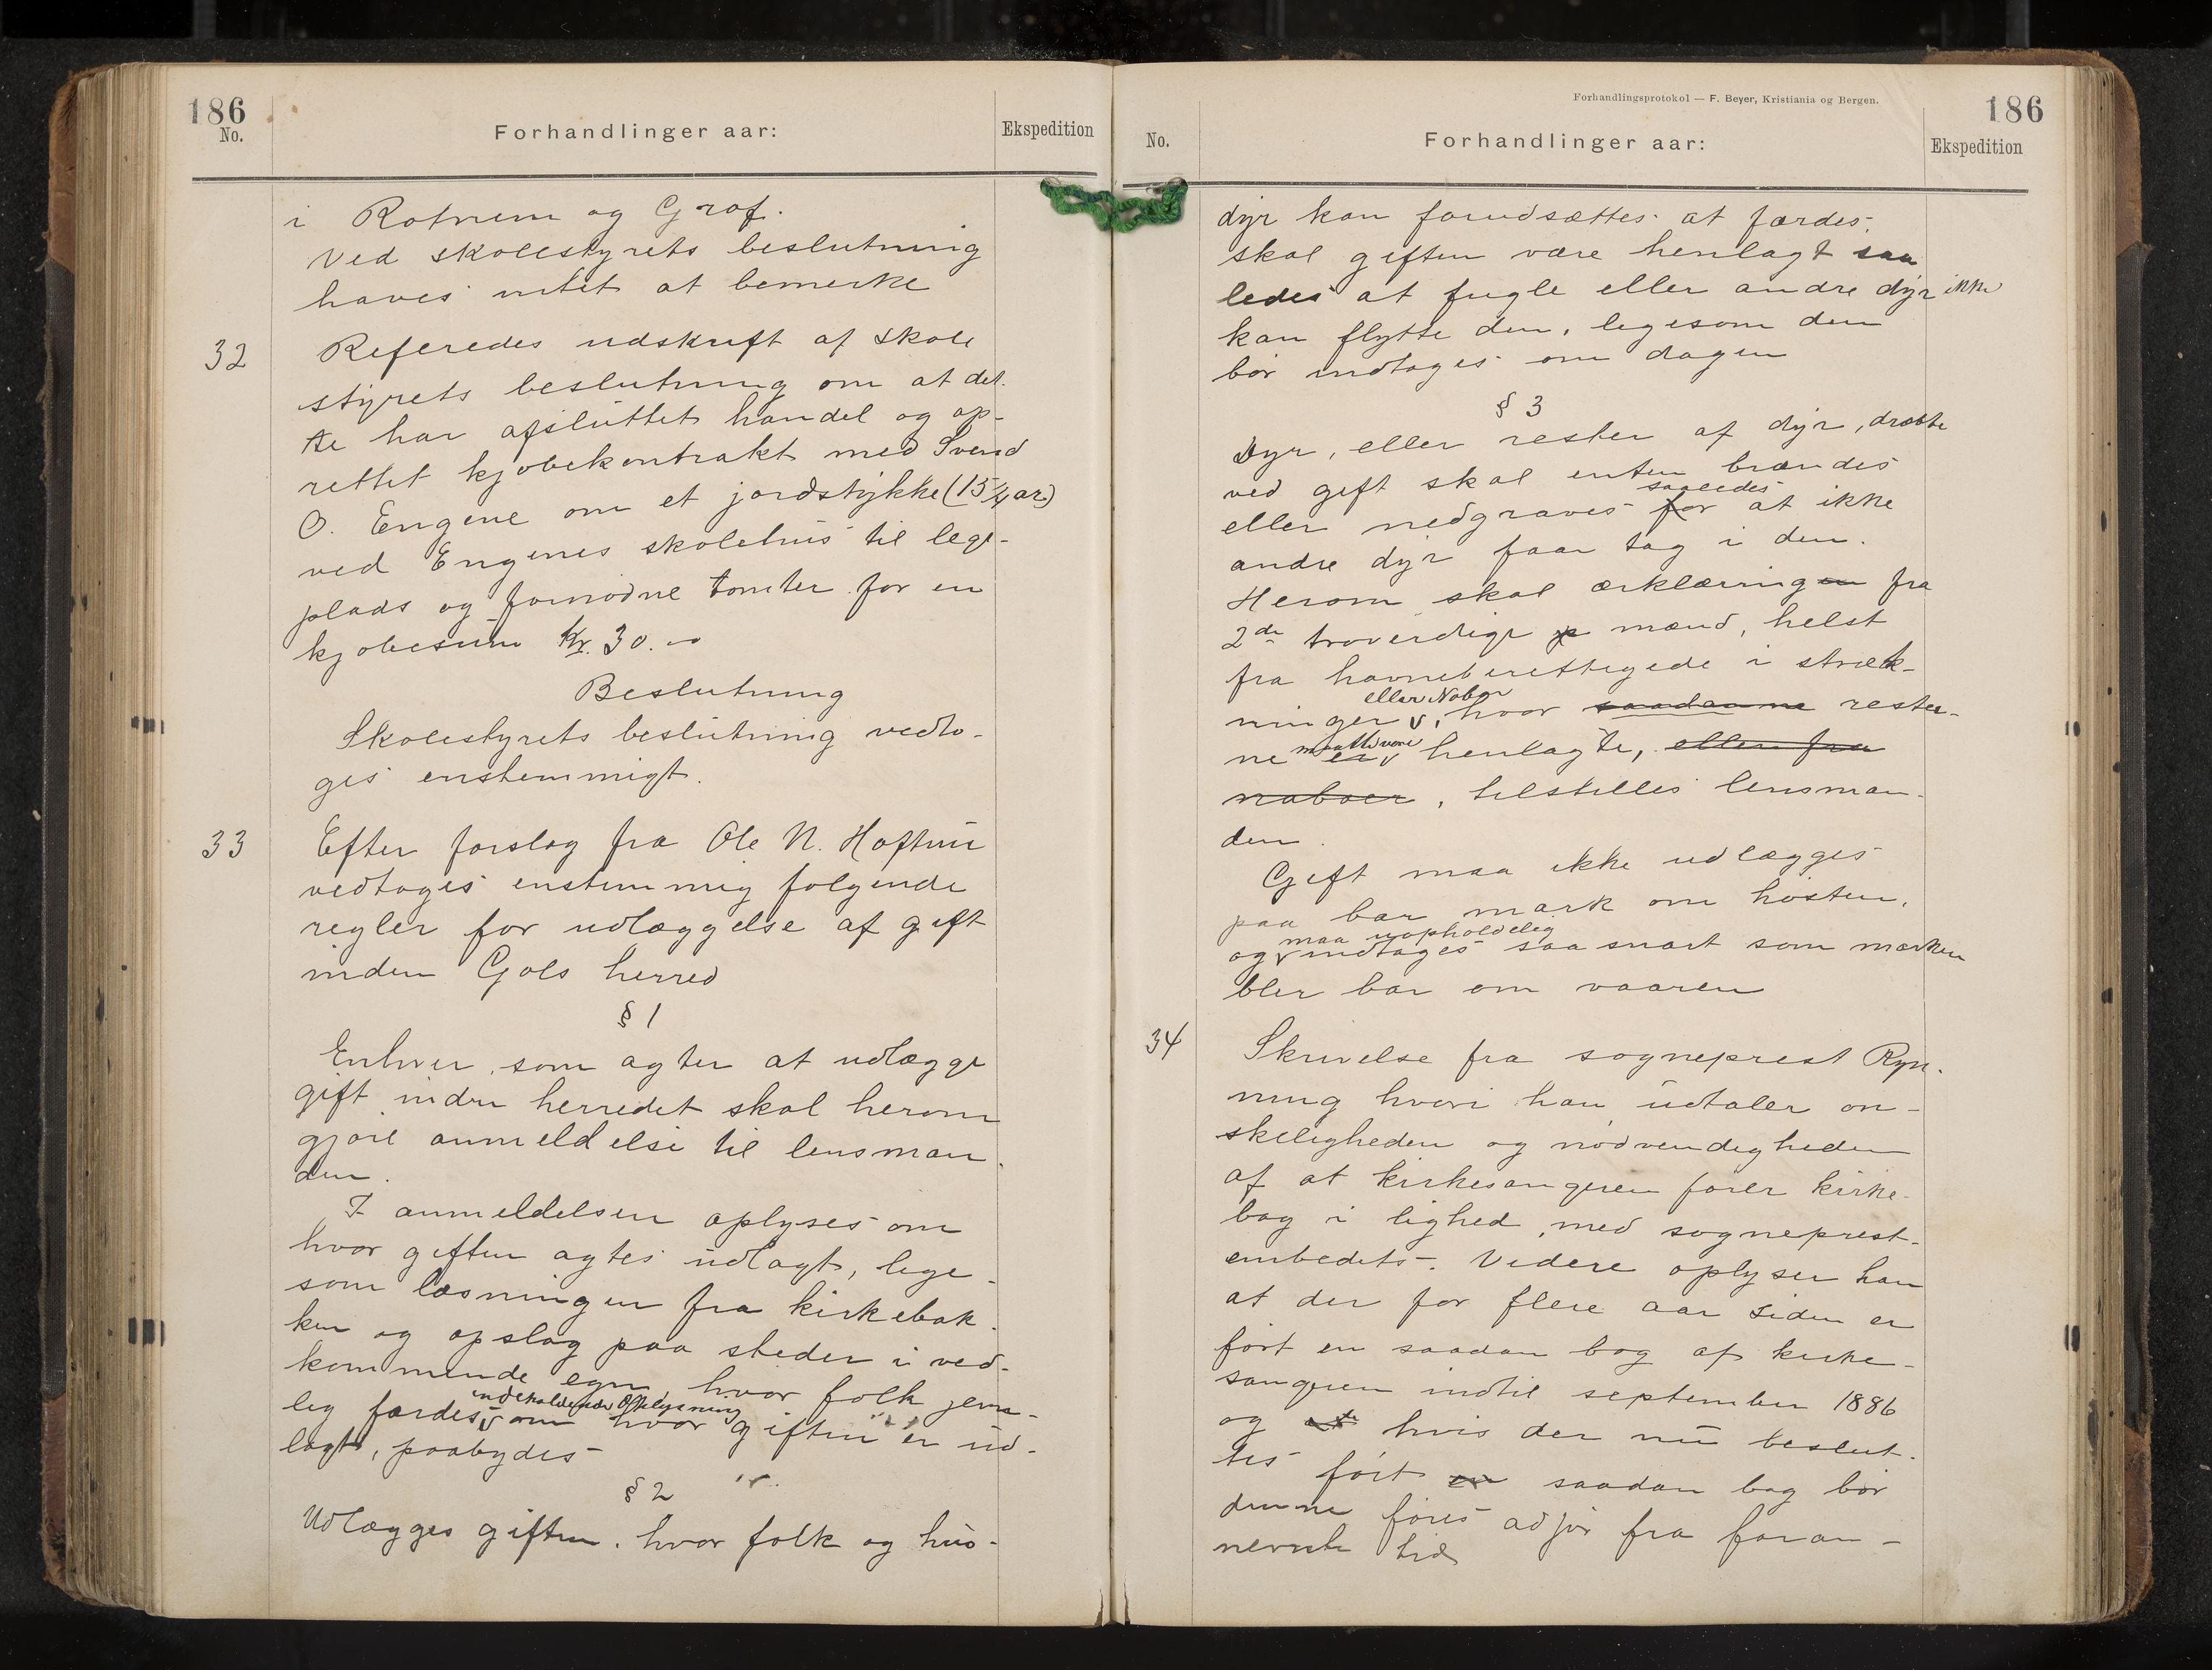 186
No.
Forhandlinger aar:
Ekspedition
i Rotnem og Graf.
Ved skolestyrets beslutning
haves intet at bemerke
32 Referedes udskrift af skole
styrets beslutning om at det
te har afsluttet handel og op-
rettet kjøbekontrakt med Svend
O. Engene om et jordstykke (15 1/4 ar)
ved Engenes skolehus til lege-
plads og fornødne tomter for en
kjøbesum Kr. 30.00
Beslutning
Skolestyrets beslutning vedto-
ges enstemmigt.
33 Efter forslag fra Ole N. Hoftun
vedtoges enstemmig følgende
regler for udlæggelse af gift
inden Gols herred
§ 1
Enhver, som agter at udlægge
gift inden herredet skal herom
gjøre anmeldelse til lensman
den.
I anmeldelsen oplyses om
hvor giften agtes udlagt, lige-
som læsningen fra kirkebak-
ken og opslag paa steder i ved-
kommende egn hvor folk jevn-
lig færdes indeholdende Oplysning om hvor giften er ud-
lagt, paabydes
§ 2
Udlægges giften, hvor folk og hus-
Forhandlingsprotokol — F. Beyer, Kristiania og Bergen.
186
No.
Forhandlinger aar:
Ekspedition
dyr kan forudsættes at færdes,
skal giften være henlagt saa
ledes at fugle eller andre dyr ikke
kan flytte den, legesom den
bør indtages om dagen
§ 3
Dyr, eller rester af dyr, dræbte
ved gift skal enten brændes
eller nedgraves for saaledes at ikke
andre dyr faar tag i den.
Herom skal ærklæringen fra
2de troverdige p mænd, helst
fra havneberettigede i stræk-
ninger eller Naboer, hvor saadanne rester-
ne er maatte være henlagte, eller fra
naboer, tilstilles lensman-
den.
Gift maa ikke udlægges
paa bar mark om høsten,
og maa uopholdelig indtages saa snart som marken
bler bar om vaaren
34 Skrivelse fra sogneprest Ryn-
ning hvori han udtaler øn-
skeligheden og nødvendigheden
af at kirkesangeren fører kirke-
bog i lighed med sogneprest-
embedets. Videre oplyser han
at der for flere aar siden er
ført en saadan bog af kirke-
sangeren indtil september 1886
og hvis der nu beslut-
tes ført en saadan bog bør
denne føres adjør fra foran-
nevnte tid